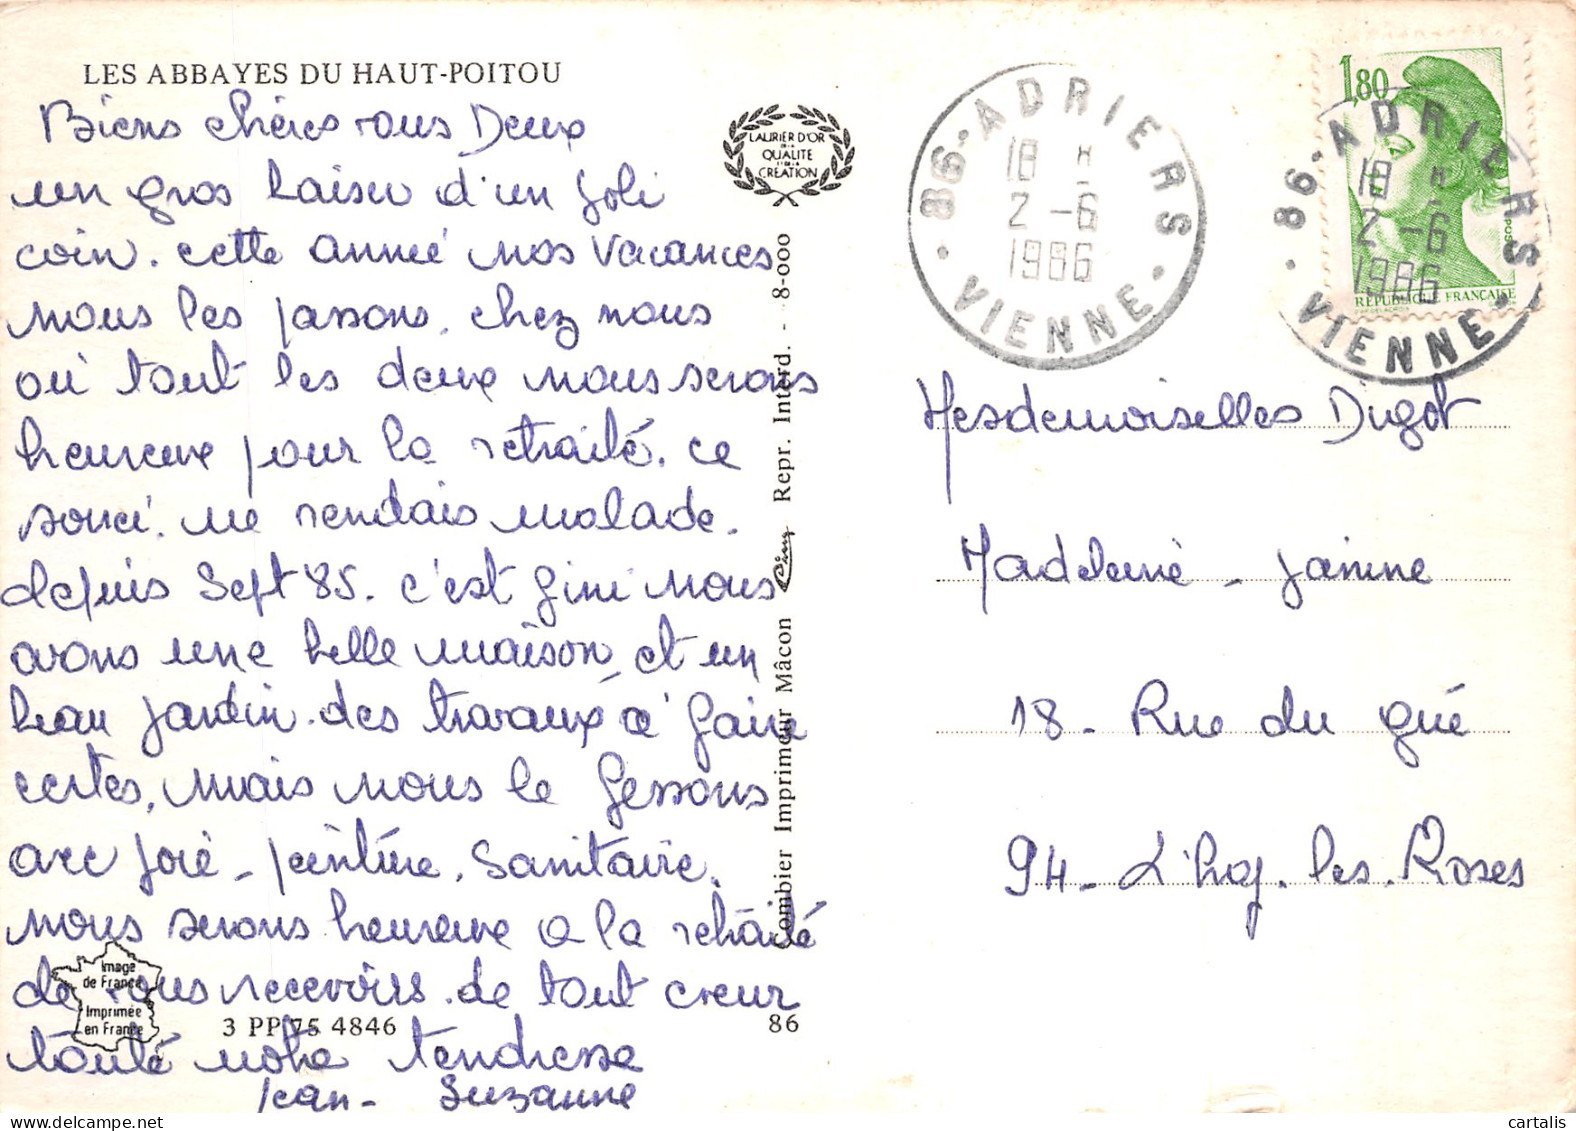 LES ABBAYES DU HAUT-POITOU
Biens chères vous Deux
un gros baiser d'un joli
coin. cette année nos vacances
nous les passons, chez nous
où tout les deux nous serons
heureux pour la retraité. ce
souci. me rendais malade.
depuis Sept 85. c'est fini nous
avons une belle maison, et un
beau jardin. des travaux à faire
certes, mais nous le fessons
avec joie - peinture, Sanitaire.
nous serons heureuxe a la retraité
de vous recevoirs. de tout coeur
toute notre tendresse
Jean - Suzanne
Image
de France
Imprimée
en France
3 PP 75 4846
86
LAURIER D'OR
DE LA
QUALITE
ET DE LA
CREATION
Combier Imprimeur Mâcon Cim Repr. Interd. - 8-000
86 - ADRIERS
18 H
2 - 6
1986
VIENNE
1,80
RÉPUBLIQUE FRANÇAISE
86 - ADRIERS
18 H
2 - 6
1986
VIENNE
Mesdemoiselles Digot
Madeleine - Janine
18 - Rue du gué
94 - L'haÿ. les. Roses
www.cartalis.com
cartalis